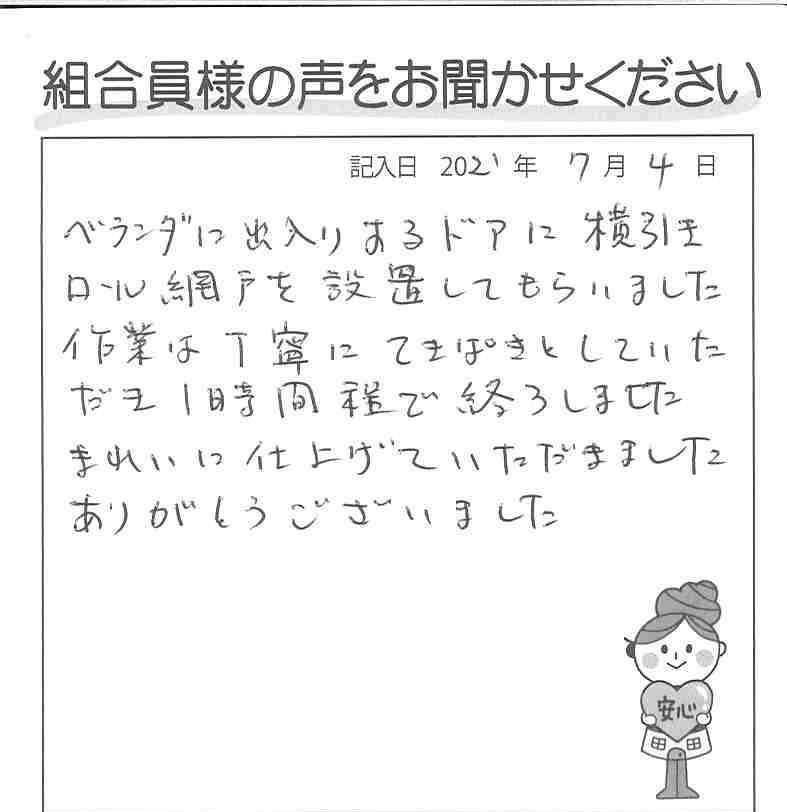 組合員様の声をお聞かせください
記入日 2021年 7月 4日
ベランダに出入りするドアに横引き
ロール網戸を設置してもらいました
作業は丁寧にてきぱきとしていた
だき 1時間程で終了しました
きれいに仕上げていただきました
ありがとうございました
安心